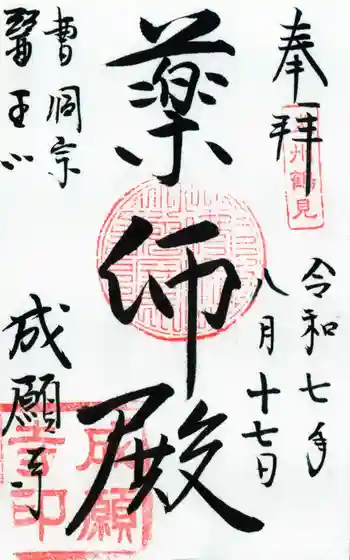 奉拝
州鶴見
令和七年
八月十七日
薬師殿
曹洞宗
醫王山
成願寺
成願
寺印